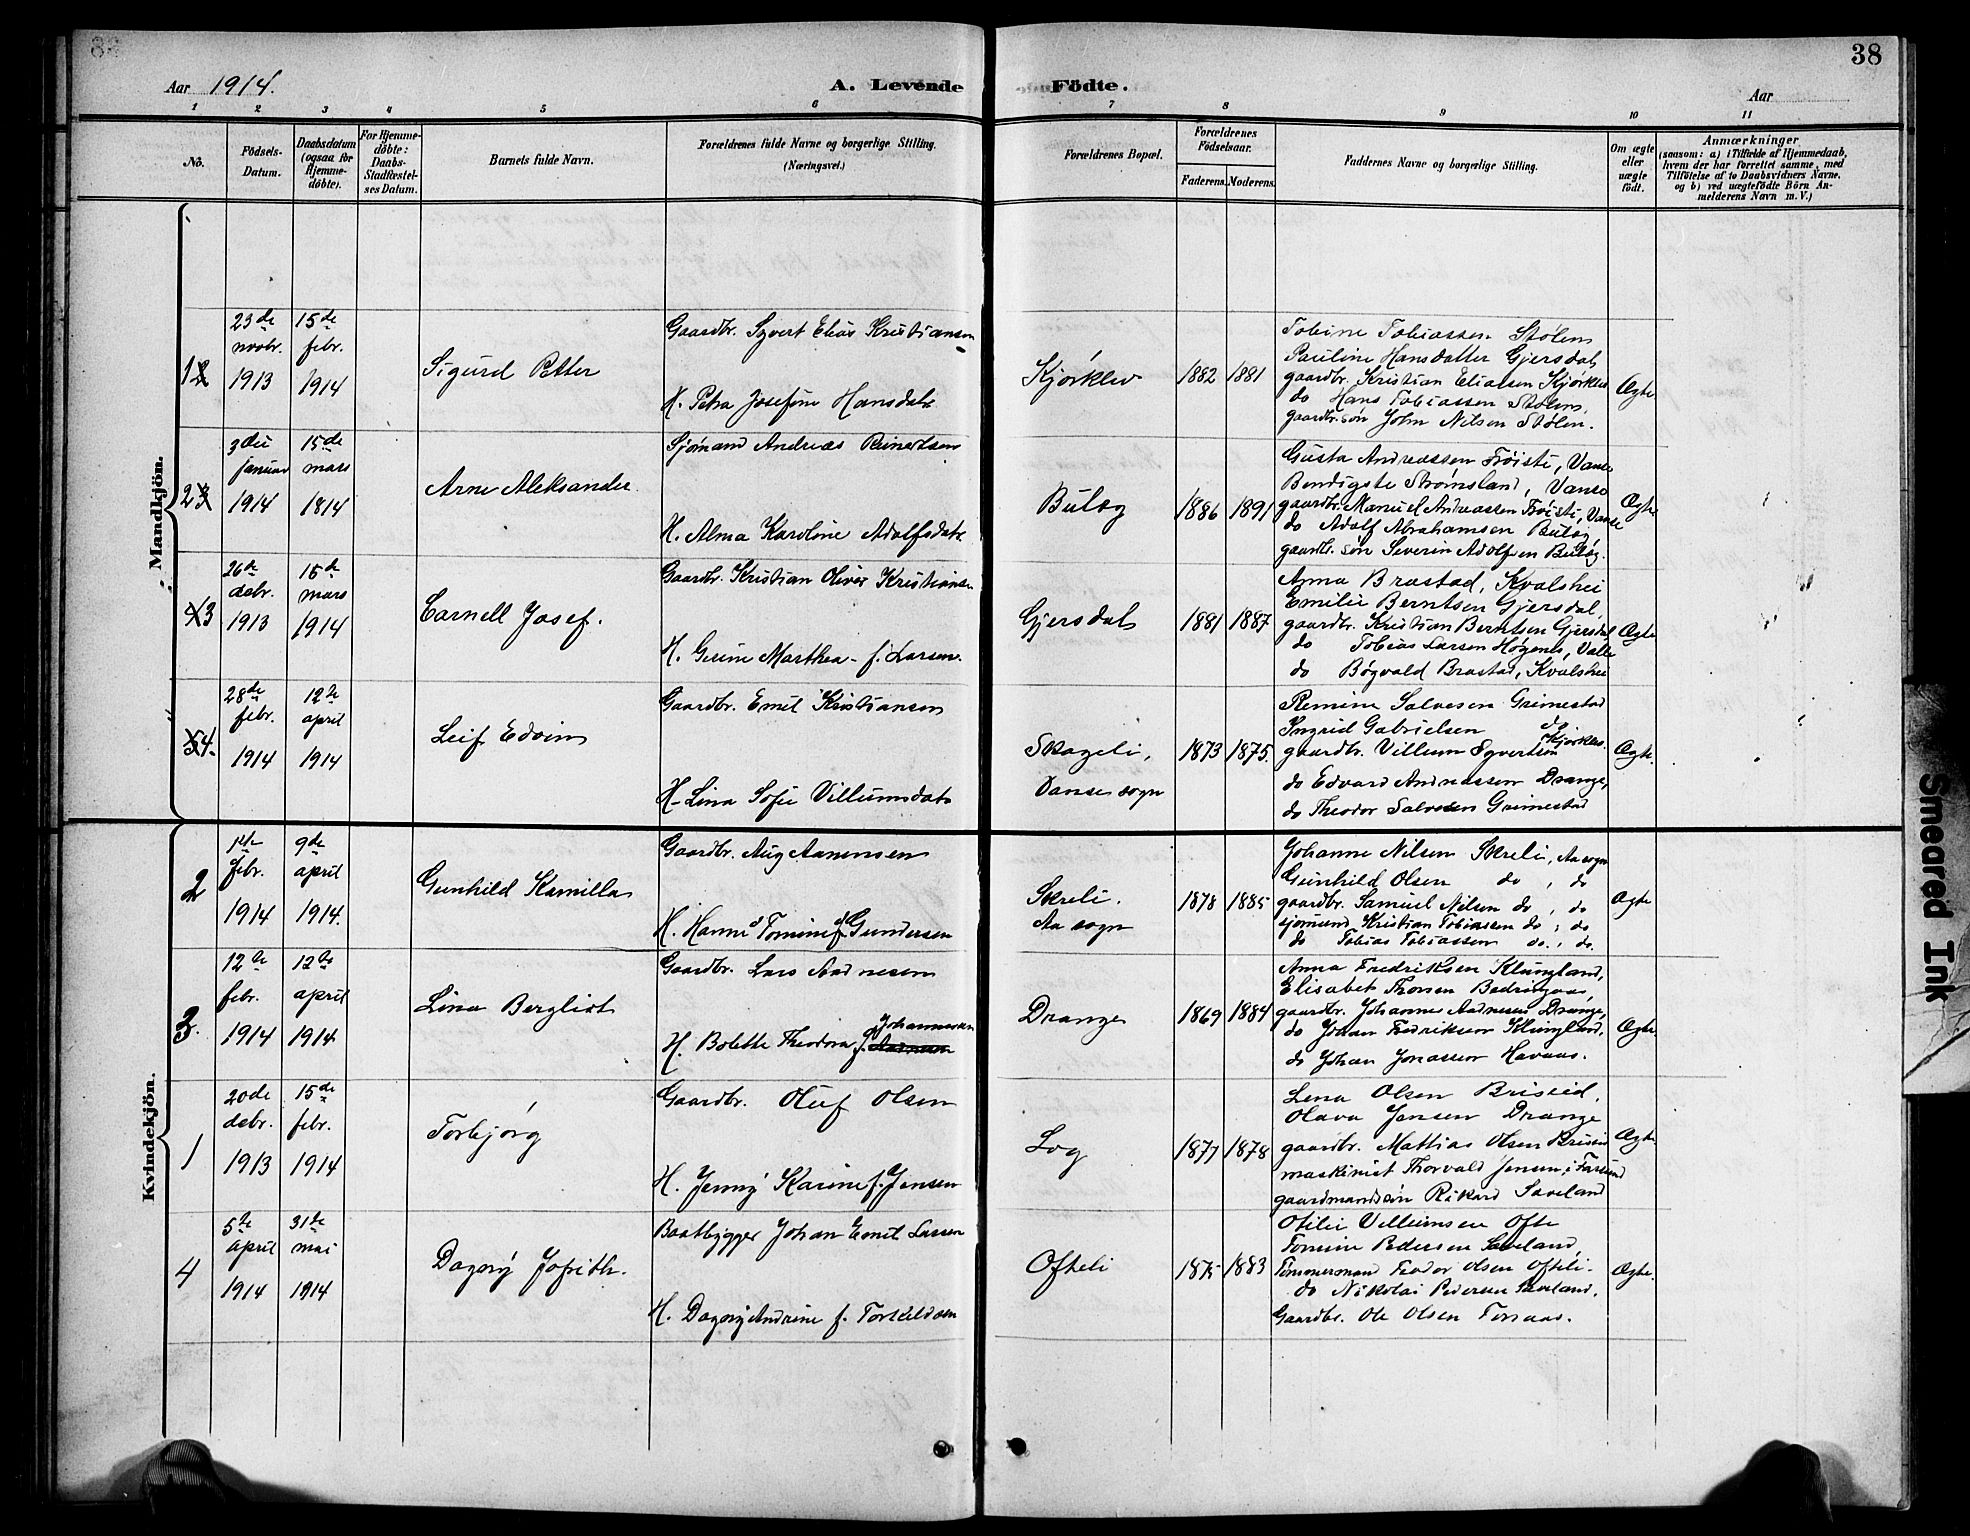 38
Aar 1914.
A. Levende Födte.
Aar
1 2 3 4 5 6 7 8 9 10 11
No.
Födsels-Datum.
Daabsdatum (ogsaa for Hjemme-döbte).
For Hjemme-döbte: Daabs-Stadfæstel-ses Datum.
Barnets fulde Navn.
Forældrenes fulde Navne og borgerlige Stilling.
(Næringsvei.)
Forældrenes Bopæl.
Forældrenes Födselsaar.
Faderens. Moderens.
Faddernes Navne og borgerlige Stilling.
Om ægte eller uægte födt.
Anmærkninger
(saasom: a) i Tilfælde af Hjemmedaab,
hvem der har forrettet samme, med
Tilföielse af to Daabsvidners Navne.
og b) ved uægtefödte Börn An-
melderens Navn m. V.)
Mandkjön.
1
23de novbr. 1913
15de febr. 1914
Sigurd Petter
Gaardbr. Syvert Elias Kristiansen
H. Petra Josefine Hansdatr
Kjørklev
1882 1881
Tobine Tobiassen Stølen
Pauline Hansdatter Gjersdal
gaardbr. Kristian Eliassen Kjørklev
do Hans Tobiassen Stølen
gaardbr. søn John Nilsen Stølen.
Ægte
2
3die januar 1914
15de mars 1814
Arne Aleksander
Sjømand Andreas Reinertsen
H. Alma Karoline Adolfsdatr
Buløg
1886 1891
Gusta Andreassen Frøisti, Vanse
Bendigste Strømsland, Vanse
gaardbr. Manuel Andreassen Frøisti, Vanse
do Adolf Abrahamsen Buløg
gaardbr. søn Severin Adolfsen Buløg.
Ægte
3
26de debr. 1913
15de mars 1914
Cornell Josef.
Gaardbr. Kristian Oliver Kristiansen
H. Gerine Marthea f. Larsen.
Gjersdal
1881 1887
Anna Brastad, Kvalshei
Emilie Berntsen Gjersdal
gaardbr. Kristian Berntsen Gjersdal
do Tobias Larsen Høgenes, Valle
do Bøgvald Brastad, Kvalshei
Ægte
4.
28de febr. 1914
12te april 1914
Leif Edvin
Gaardbr. Emil Kristiansen
H. Lina Sofie Villiumsdatr
Skageli, Vanse sogn
1873 1875.
Remine Salvesen Grimestad
Ingrid Gabrielsen do
gaardbr. Villum Syvertsen Kjørklev.
do Edvard Andreassen Drange,
do Theodor Salvesen Grimestad
Ægte.
Kvindekjön.
2
1ste febr. 1914
9de april 1914.
Gunhild Kamilla
Gaardbr. Aug Aanensen
H. Hanne Tomine f. Gundersen
Skreli. Aa sogn
1878 1885
Johanne Nilsen Skreli, Aa sogn
Gunhild Olsen do, do
gaardbr. Samuel Nilsen do, do
sjømand Kristian Tobiassen do, do
do Tobias Tobiassen do., do.
Ægte
3.
12te febr. 1914
12te april 1914
Lina Bergliot
Gaardbr. Lars Aadnesen
H. Bolette Theodora f. Johannessen
Drange
1869 1884
Anna Fredriksen Klungland,
Elisabet Thorsen
gaardbr. Johannes Aadnesen Drange,
do Johan Fredriksen Klungland,
do Johan Jonassen Havaas.
Ægte.
1
20de debr. 1913
15de febr. 1914
Torbjørg
Gaardbr. Oluf Olsen
H. Jenny Karine f. Jensen
Log
1877 1878
Lena Olsen Briseid,
Olava Jensen Drange
gaardbr. Mattias Olsen Briseid
maskinist Thorvald Jensen, Farsund
gaardmandssøn Rikard Saveland
Ægte
4
5te april 1914
31te mai 1914
Dagny Jofrith.
Baatbygger Johan Emil Larsen
H. Dagny Andrine f. Torkeldsen
Ofteli
1875 1883
Otilie Villumsen Ofte
Tomine Pedersen Saveland,
Tømmermand Teodor Olsen Ofteli.
do Nikolai Pedersen Saveland.
Gaardbr. Ole Olsen Torsaas.
Ægte.
Smeared Ink